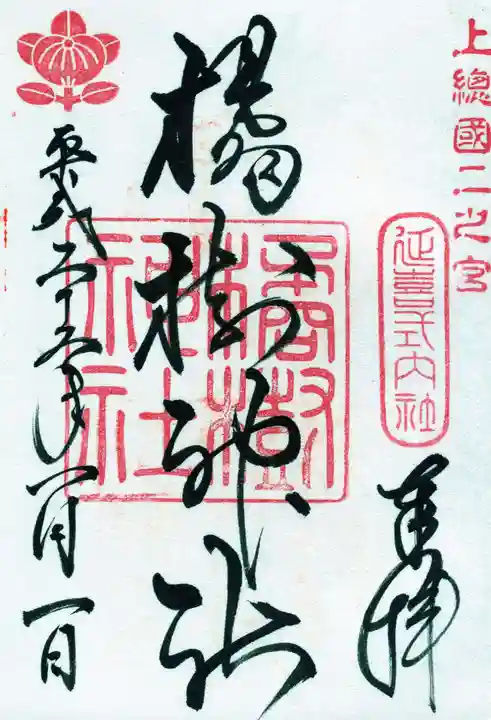 上總國二之宮
延喜式内社
奉拝
橘樹神社
橘樹神社
平成二十五年一月一日